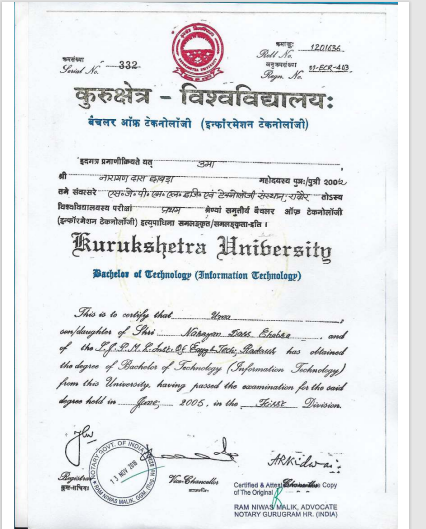 क्रमसंख्या
Serial No. 332
क्रमांकः 1201636
Roll No.
अनुक्रमसंख्या 01-ECR-403
Regn. No.
कुरुक्षेत्र - विश्वविद्यालयः
बैचलर ऑफ़ टेक्नोलॉजी (इन्फॉरमेशन टेक्नोलॉजी)
इदमत्र प्रमाणीक्रियते यत् उमा
श्री नारायण दास महोदयस्य पुत्रः/पुत्री 2005
तमे संवत्सरे एस.जे.पी.एम.एल. इंजि. एवं टेक्नोलॉजी संस्थान, रादौर तोऽस्य
विश्वविद्यालयस्य परीक्षां प्रथम श्रेण्यां समुत्तीर्य बैचलर ऑफ़ टेक्नोलॉजी
(इन्फॉरमेशन टेक्नोलॉजी) इत्युपाधिना समलङ्कृतः/समलङ्कृता-इति ।
Kurukshetra University
Bachelor of Technology (Information Technology)
This is to certify that Uma
son/daughter of Shri Narayan Dass and
of the Inst. Of Engg & Tech., Radaur has obtained
the degree of Bachelor of Technology (Information Technology)
from this University, having passed the examination for the said
degree held in June, 2005, in the First Division.
Registrar
कुल-सचिवः
Vice-Chancellor
NOTARY GOVT. OF INDIA
13 NOV 2016
RAM NIWAS MALIK
Certified & Attested Copy
Chancellor
of The Original
RAM NIWAS MALIK, ADVOCATE
NOTARY GURUGRAM HR. (INDIA)